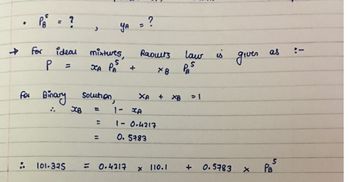 • P_B^S = ? , y_A = ?
→ For ideal mixtures, Raoult's law is given as :-
P = x_A P_A^S + x_B P_B^S
For Binary solution, x_A + x_B = 1
∴ x_B = 1 - x_A
= 1 - 0.4217
= 0.5783
∴ 101.325 = 0.4217 x 110.1 + 0.5783 x P_B^S